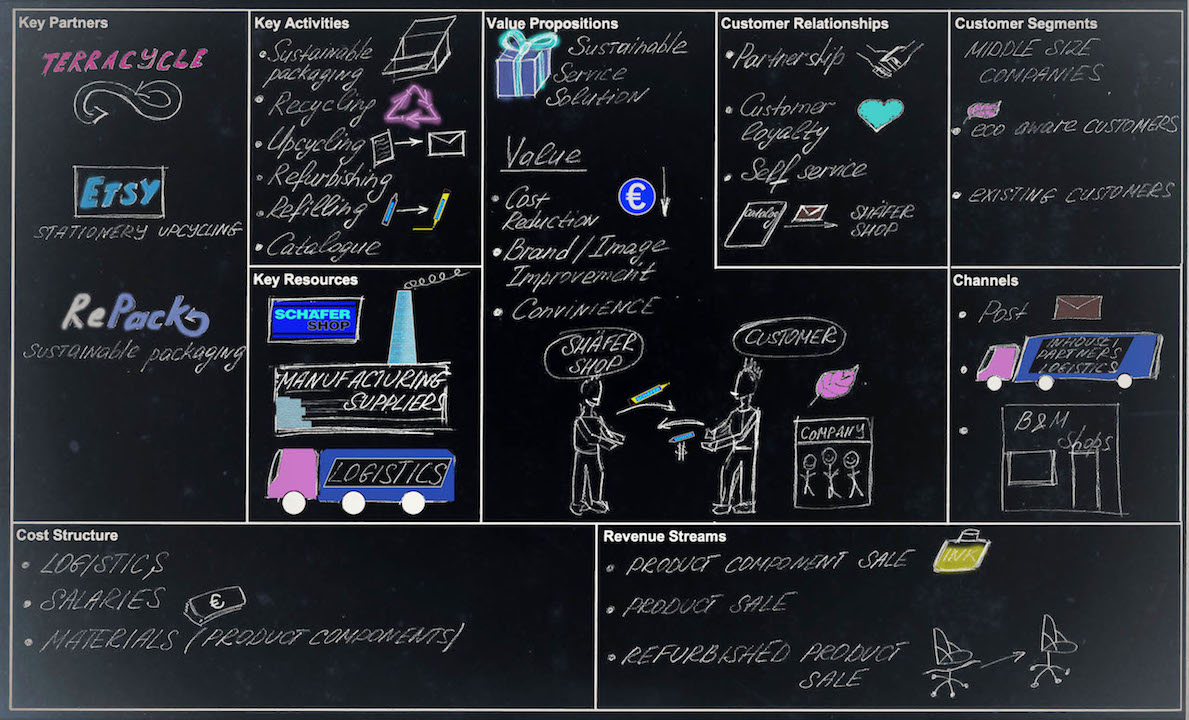 Key Partners
TERRACYCLE
ETSY
STATIONERY UPCYCLING
RePack
Sustainable packaging
Key Activities
• Sustainable
packaging
• Recycling
• Upcycling
• Refurbishing
• Refilling
• Catalogue
Key Resources
SCHÄFER
SHOP
MANUFACTURING
SUPPLIERS
LOGISTICS
Value Propositions
Sustainable
Service
Solution
Value
• Cost
Reduction
€
• Brand/Image
Improvement
• CONVINIENCE
SHÄFER
SHOP
CUSTOMER
COMPANY
Customer Relationships
• Partnership
• Customer
loyalty
• Self service
Catalog
SHÄFER
SHOP
Customer Segments
MIDDLE SIZE
COMPANIES
• eco aware CUSTOMERS
• EXISTING CUSTOMERS
Channels
• Post
• INHOUSE |
PARTNERS
LOGISTICS
• B&M
Shops
Cost Structure
• LOGISTICS
• SALARIES
€
• MATERIALS (PRODUCT COMPONENTS)
Revenue Streams
• PRODUCT COMPONENT SALE
INK
• PRODUCT SALE
• REFURBISHED PRODUCT
SALE